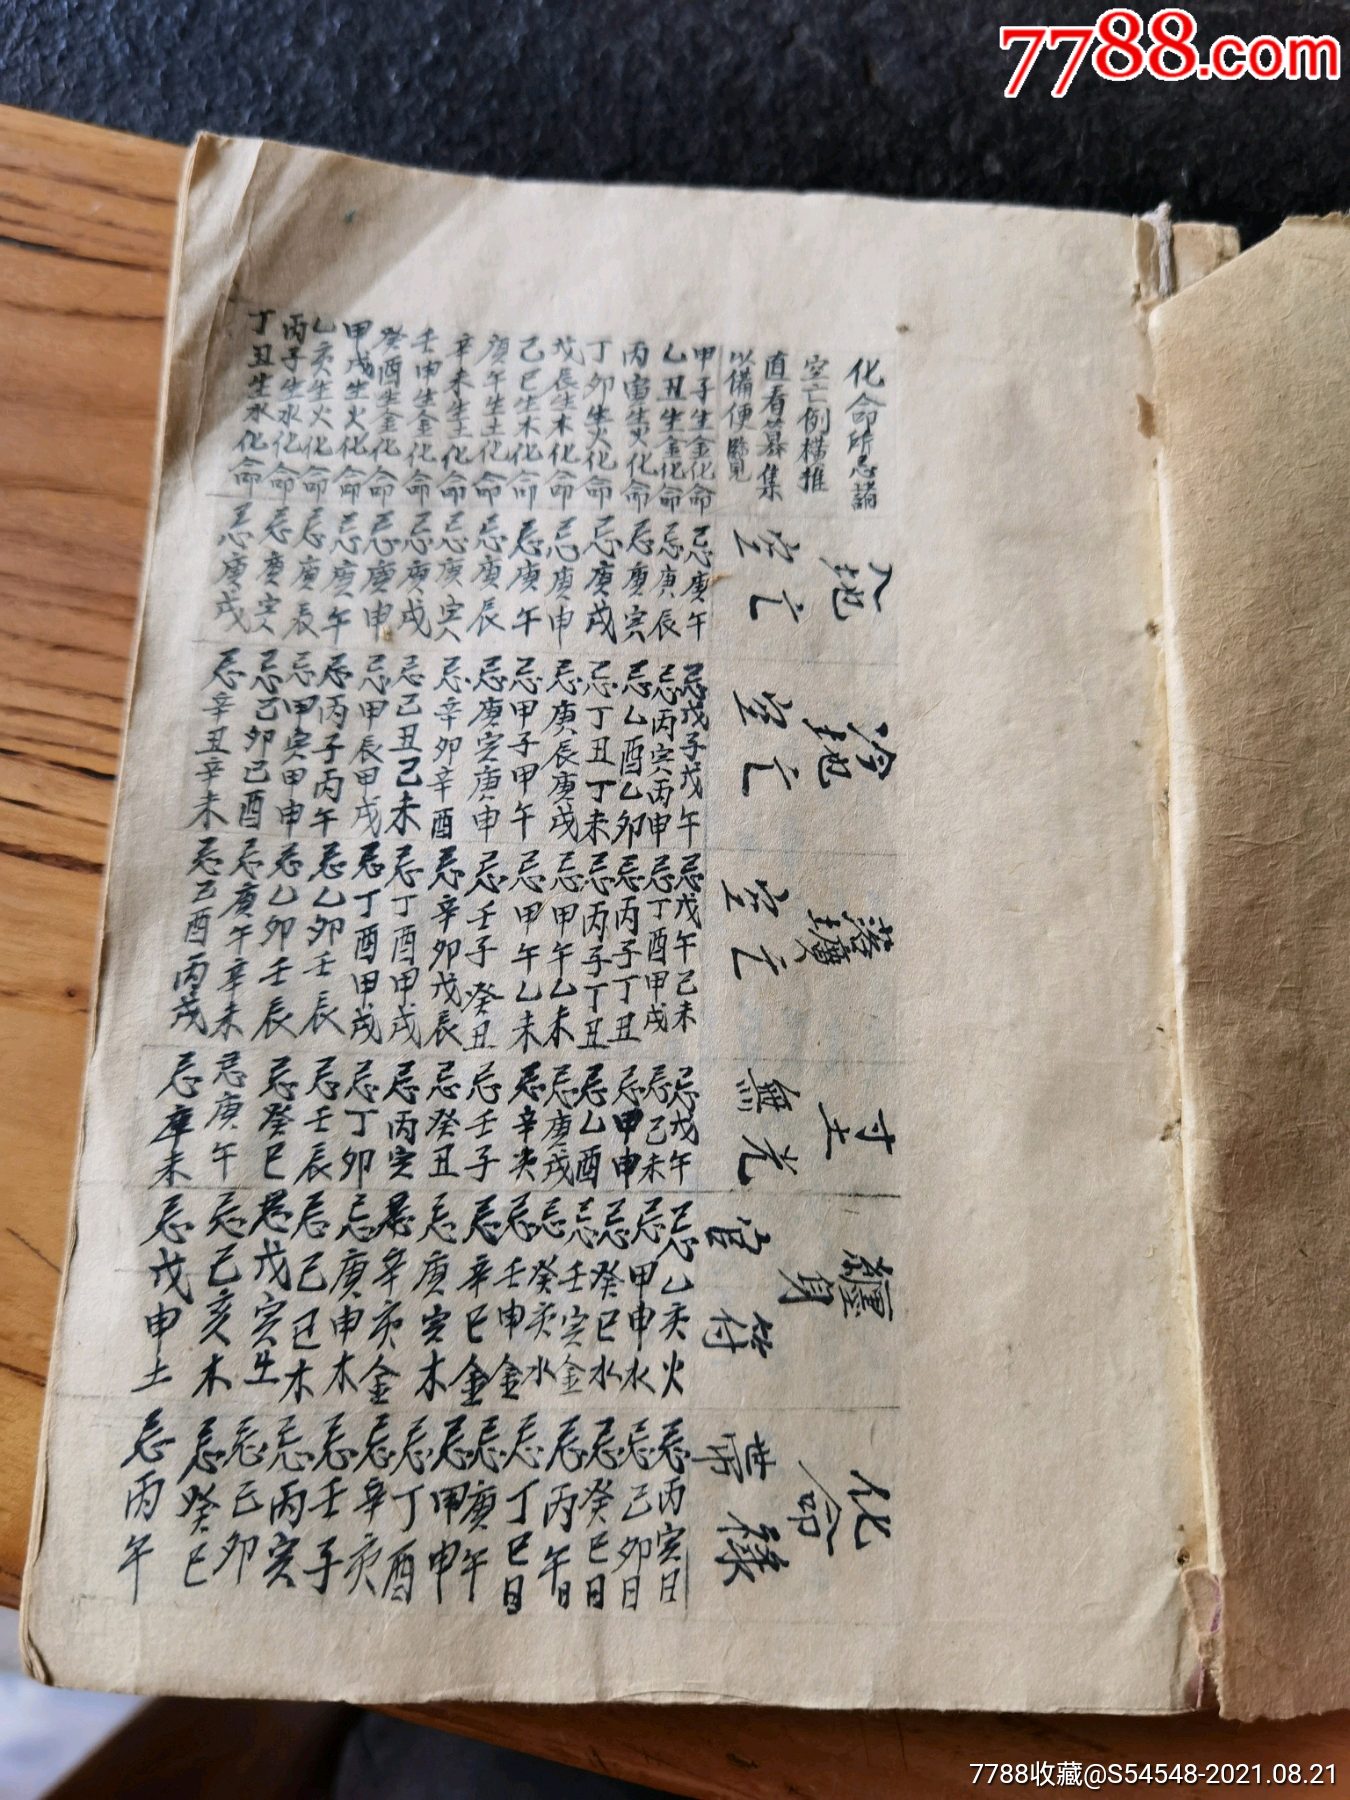 7788.com
化命所忌諸
空亡例横推
直看纂集
以備便覽
入地
空亡
冷地
空亡
落壙
空亡
寸土
無光
纏身
官符
化命
帶祿
甲子生金化命 忌庚午 忌戊子戊午 忌戊午己未 忌戊午 忌乙亥火 忌丙寅日
乙丑生金化命 忌庚辰 忌丙寅丙申 忌丁酉甲戌 忌己未 忌甲申水 忌己卯日
丙寅生火化命 忌庚寅 忌乙酉乙卯 忌丙子丁丑 忌甲申 忌癸巳水 忌癸巳日
丁卯生火化命 忌庚戌 忌丁丑丁未 忌丙子丁丑 忌乙酉 忌壬寅金 忌丙午日
戊辰生木化命 忌庚申 忌庚辰庚戌 忌甲午乙未 忌庚戌 忌癸亥水 忌丁巳日
己巳生木化命 忌庚午 忌甲子甲午 忌甲午乙未 忌辛亥 忌壬申金 忌庚午
庚午生土化命 忌庚辰 忌庚寅庚申 忌壬子癸丑 忌壬子 忌辛巳金 忌甲申
辛未生土化命 忌庚寅 忌辛卯辛酉 忌辛卯戊辰 忌癸丑 忌庚寅木 忌丁酉
壬申生金化命 忌庚戌 忌己丑己未 忌丁酉甲戌 忌丙寅 忌辛亥金 忌辛亥
癸酉生金化命 忌庚申 忌甲辰甲戌 忌丁酉甲戌 忌丁卯 忌庚申木 忌壬子
甲戌生火化命 忌庚午 忌丙子丙午 忌乙卯壬辰 忌壬辰 忌己巳木 忌丙寅
乙亥生火化命 忌庚辰 忌甲寅甲申 忌乙卯壬辰 忌癸巳 忌戊寅生 忌己卯
丙子生水化命 忌庚寅 忌己卯己酉 忌庚午辛未 忌庚午 忌己亥木 忌癸巳
丁丑生水化命 忌庚戌 忌辛丑辛未 忌己酉丙戌 忌庫未 忌戊申土 忌丙午
7788收藏@S54548-2021.08.21